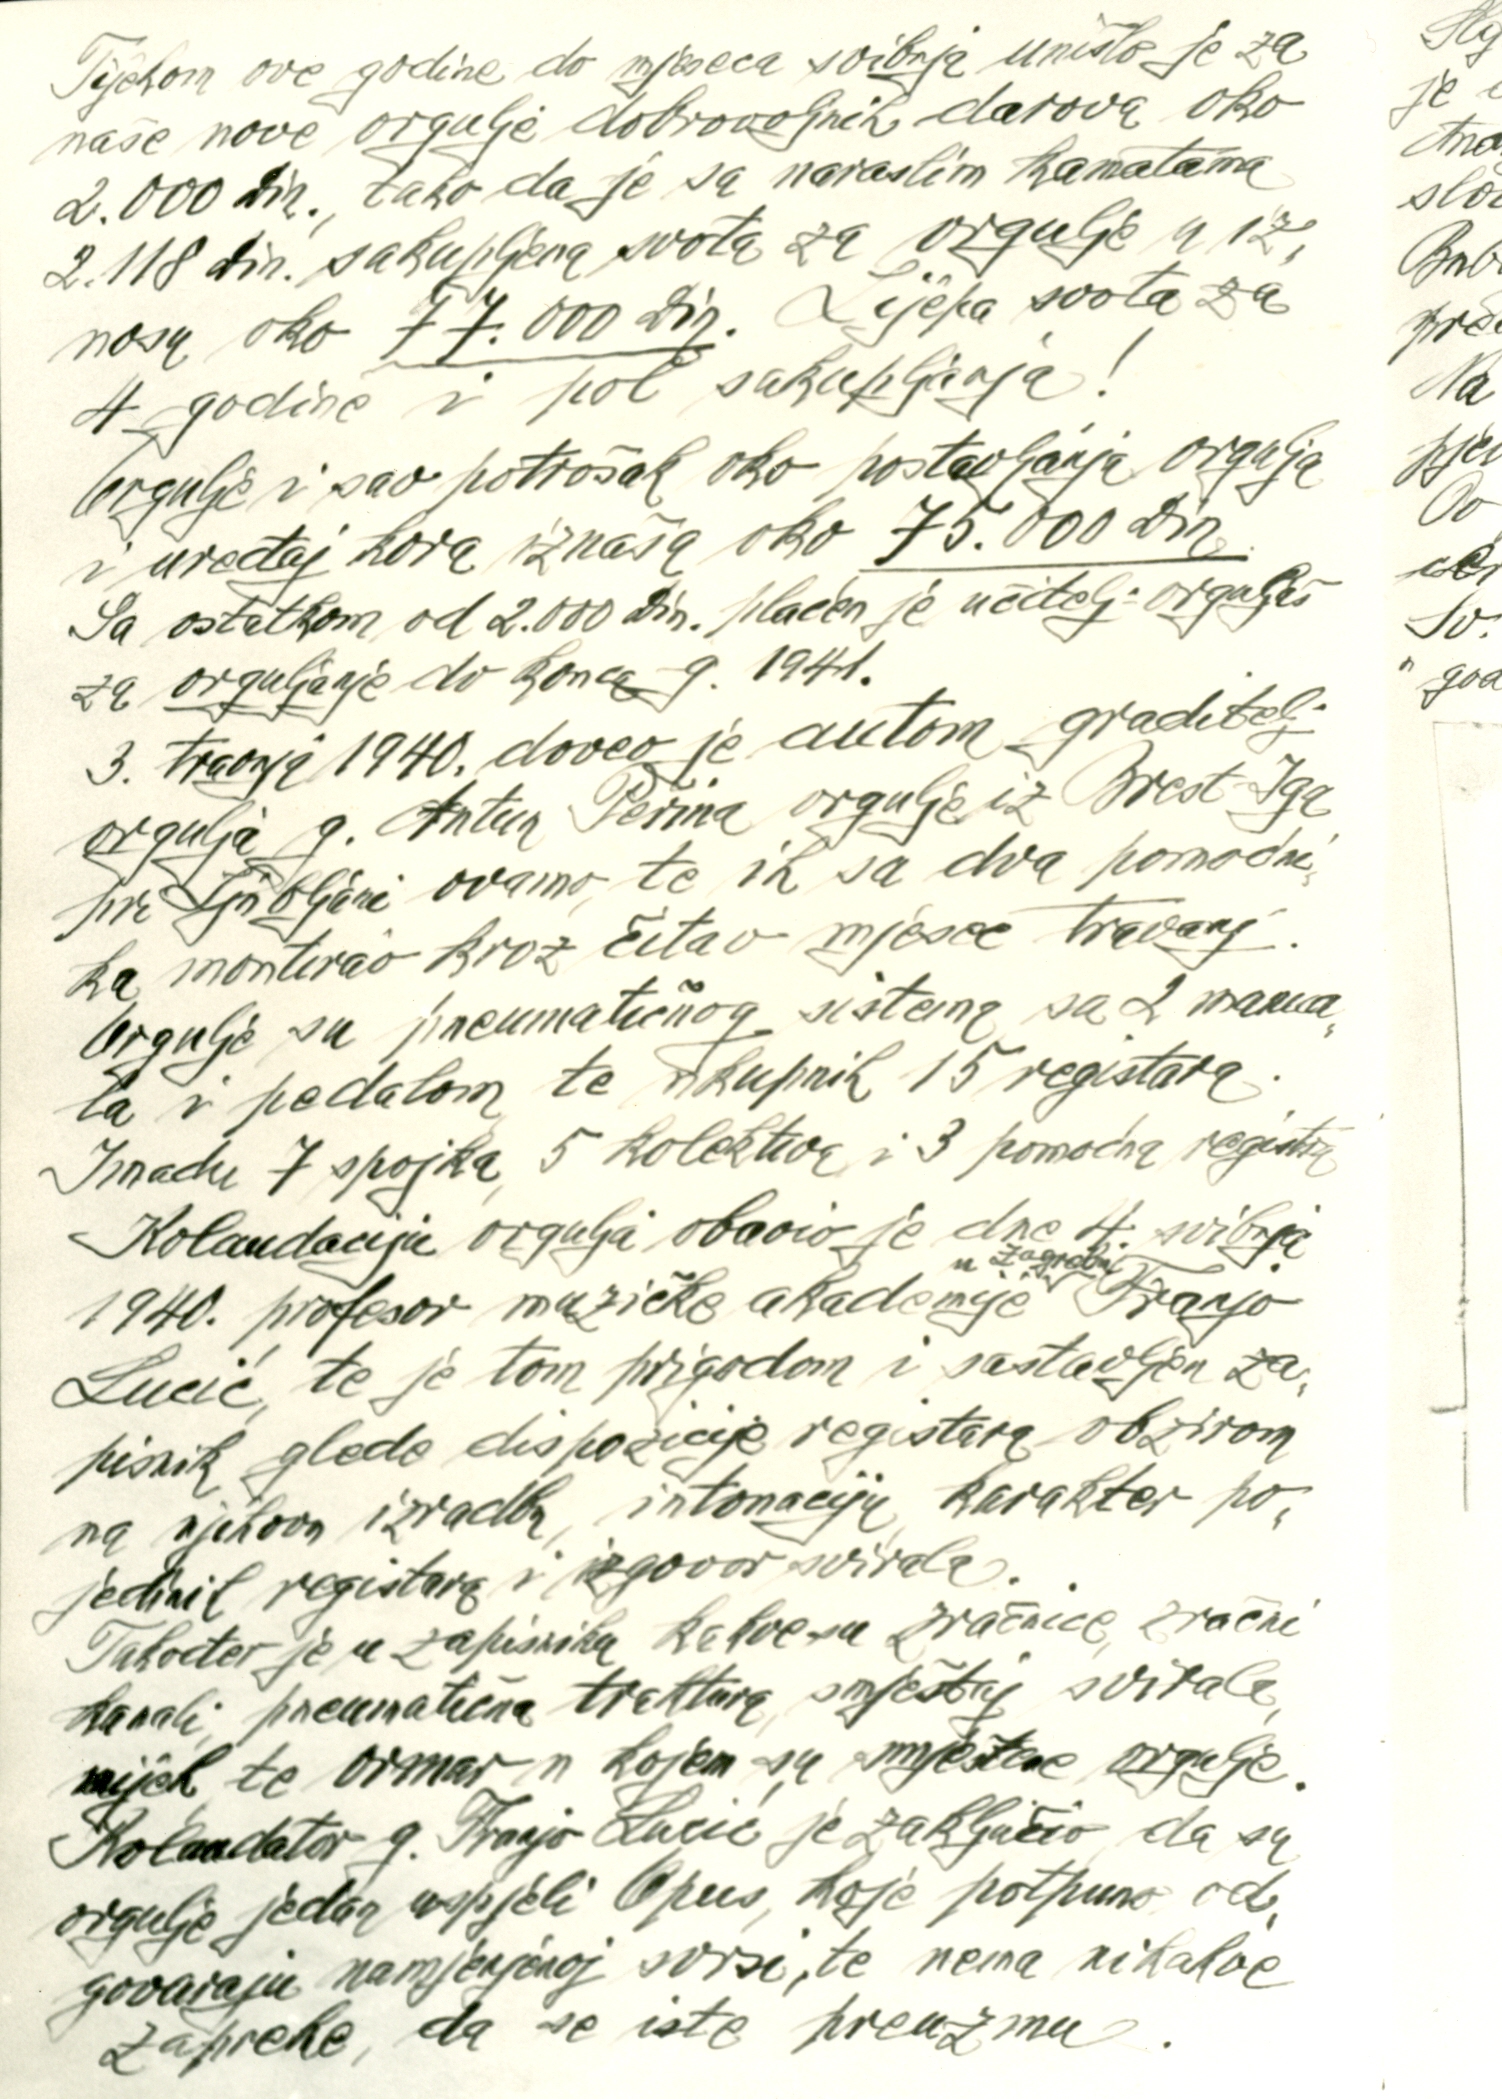 Tijekom ove godine do mjeseca svibnja unišlo je za
naše nove orgulje dobrovoljnih darova oko
2.000 Din., tako da je sa naraslim kamatama
2.118 Din. sakupljena svota za orgulje u iz„
nosu oko 77.000 Din. Lijepa svota za
4 godine i pol sakupljanja!
Orgulje i sav potrošak oko postavljanja orgulja
i uređaj kora iznaša oko 75.000 Din
Sa ostatkom od 2.000 Din. plaćen je učitelj-orguljaš
za orguljanje do konca g. 1941.
3. travnja 1940. doveo je autom graditelj
orgulja g. Antun Perina orgulje iz Brest-Iga
pri Ljubljani ovamo, te ih sa dva pomoćni„
ka montirao kroz čitav mjesec travanj.
Orgulje su pneumatičnog sistema sa 2 manua„
la i pedalom, te ukupnih 15 registara.
Imadu 7 spojka, 5 kolektiva i 3 pomoćna registra
Kolaudaciju orgulja obavio je dne 4. svibnja
u Zagrebu
1940. profesor muzičke akademije Franjo
Lucić, te je tom prigodom i sastavljen za„
pisnik glede dispozicije registara obzirom
na njihovu izradbu, intonaciju, karakter po„
jedinih registara i izgovor svirala.
Također je u zapisniku kakve su zračnice, zračni
kanali, pneumatična traktura, smještaj svirala,
mijeh te ormar u kojem su smještene orgulje.
Kolaudator g. Franjo Lucić je zaključio, da su
orgulje jedan uspjeli Opus, koje potpuno od„
govaraju namjenjenoj svrsi, te nema nikakve
zapreke, da se iste preuzmu.
je
slov
Na
Ov
Sv.